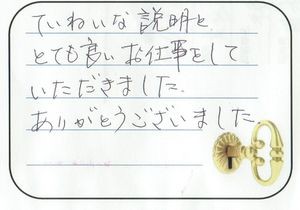 ていねいな説明と、
とても良いお仕事をして
いただきました。
ありがとうございました